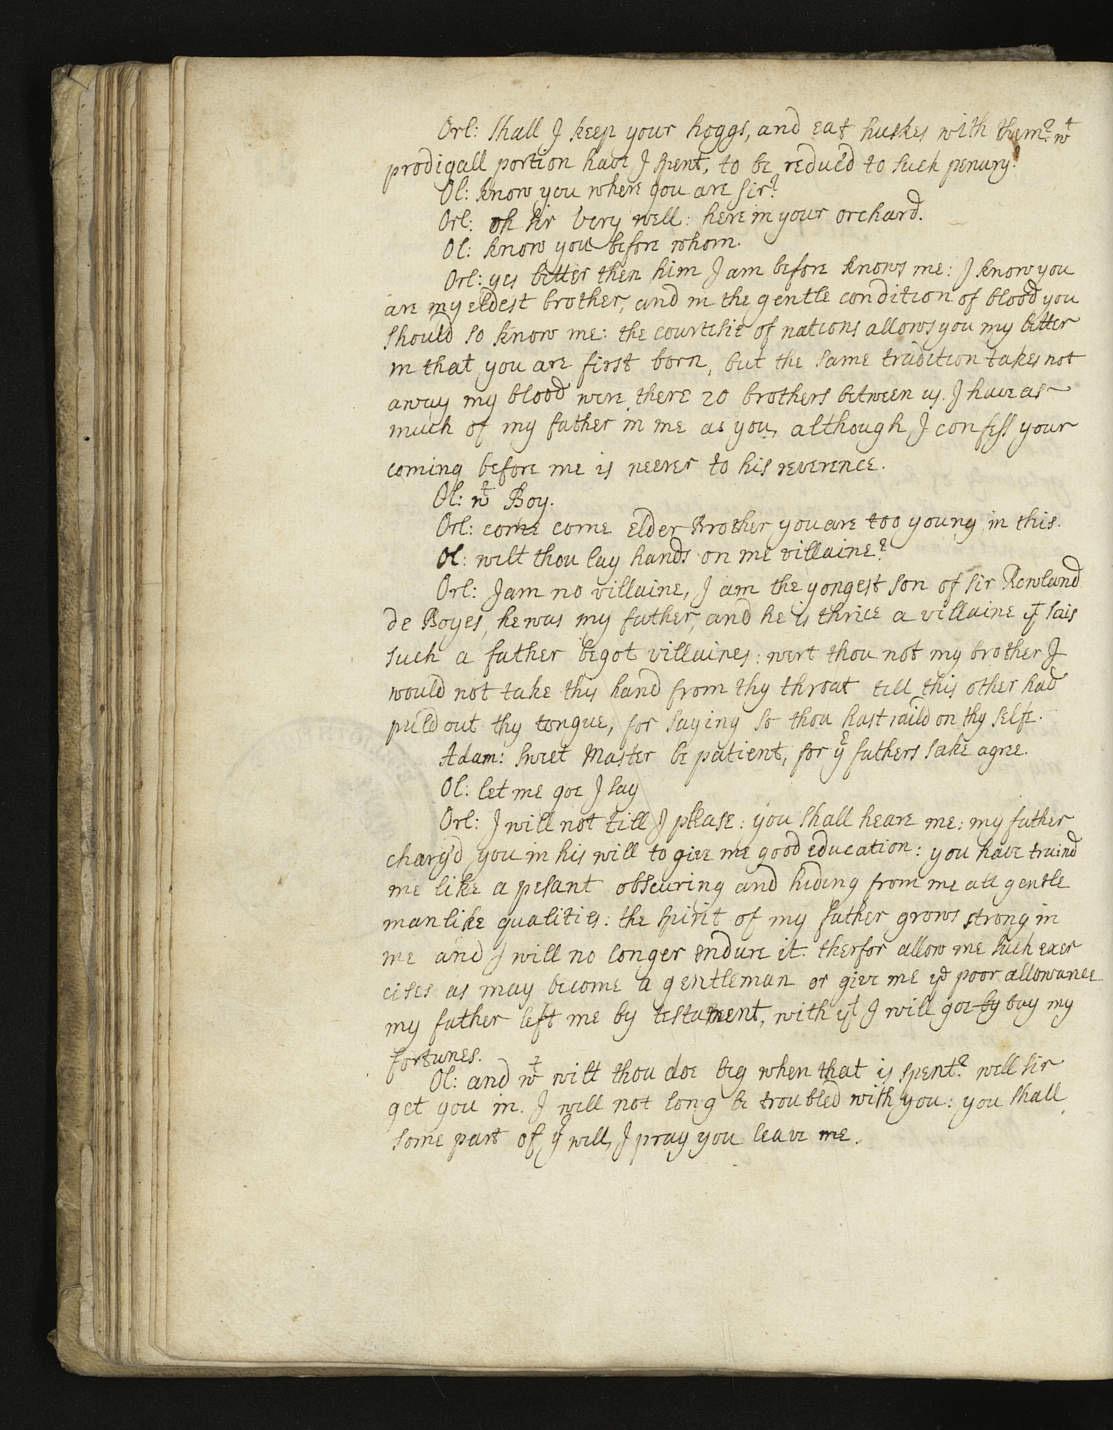 Orl: Shall I keep your hoggs, and eat huskes with them? wt
prodigall portion have I spent, to be reduc'd to such penury?
Ol: know you where you are sir?
Orl: oh sir very well: here in your orchard.
Ol: know you before whom.
Orl: yes better then him I am before knows me: I know you
are my eldest brother, and in the gentle condition of blood you
should so know me: the courtesie of nations allows you my better
in that you are first born, but the same tradition takes not
away my blood were there 20 brothers between us. I have as
much of my father in me as you, although I confess your
coming before me is neerer to his reverence.
Ol: wt Boy.
Orl: come come elder Brother you are too young in this.
Ol: wilt thou lay hands on me villaine?
Orl: I am no villaine, I am the yongest son of sir Rowland
de Boyes, he was my father, and he is thrice a villaine yt sais
such a father begot villaines: wert thou not my brother I
would not take this hand from thy throat till this other had
puld out thy tongue, for saying so thou hast raild on thy selfe.
Adam: sweet Master be patient, for ye fathers sake agree.
Ol: let me goe I say
Orl: I will not till I please: you shall heare me: my father
charg'd you in his will to give me good education: you have traind
me like a pesant obscuring and hiding from me all gentle
manlike qualities: the spirit of my father grows strong in
me and I will no longer endure it: therfor allow me such exer
cises as may become a gentleman or give me ye poor allowance
my father left me by testament, with yt I will goe by buy my
fortunes.
Ol: and wt wilt thou doe beg when that is spent? well sir
get you in. I will not long be troubled with you: you shall
some part of yr will, I pray you leave me.